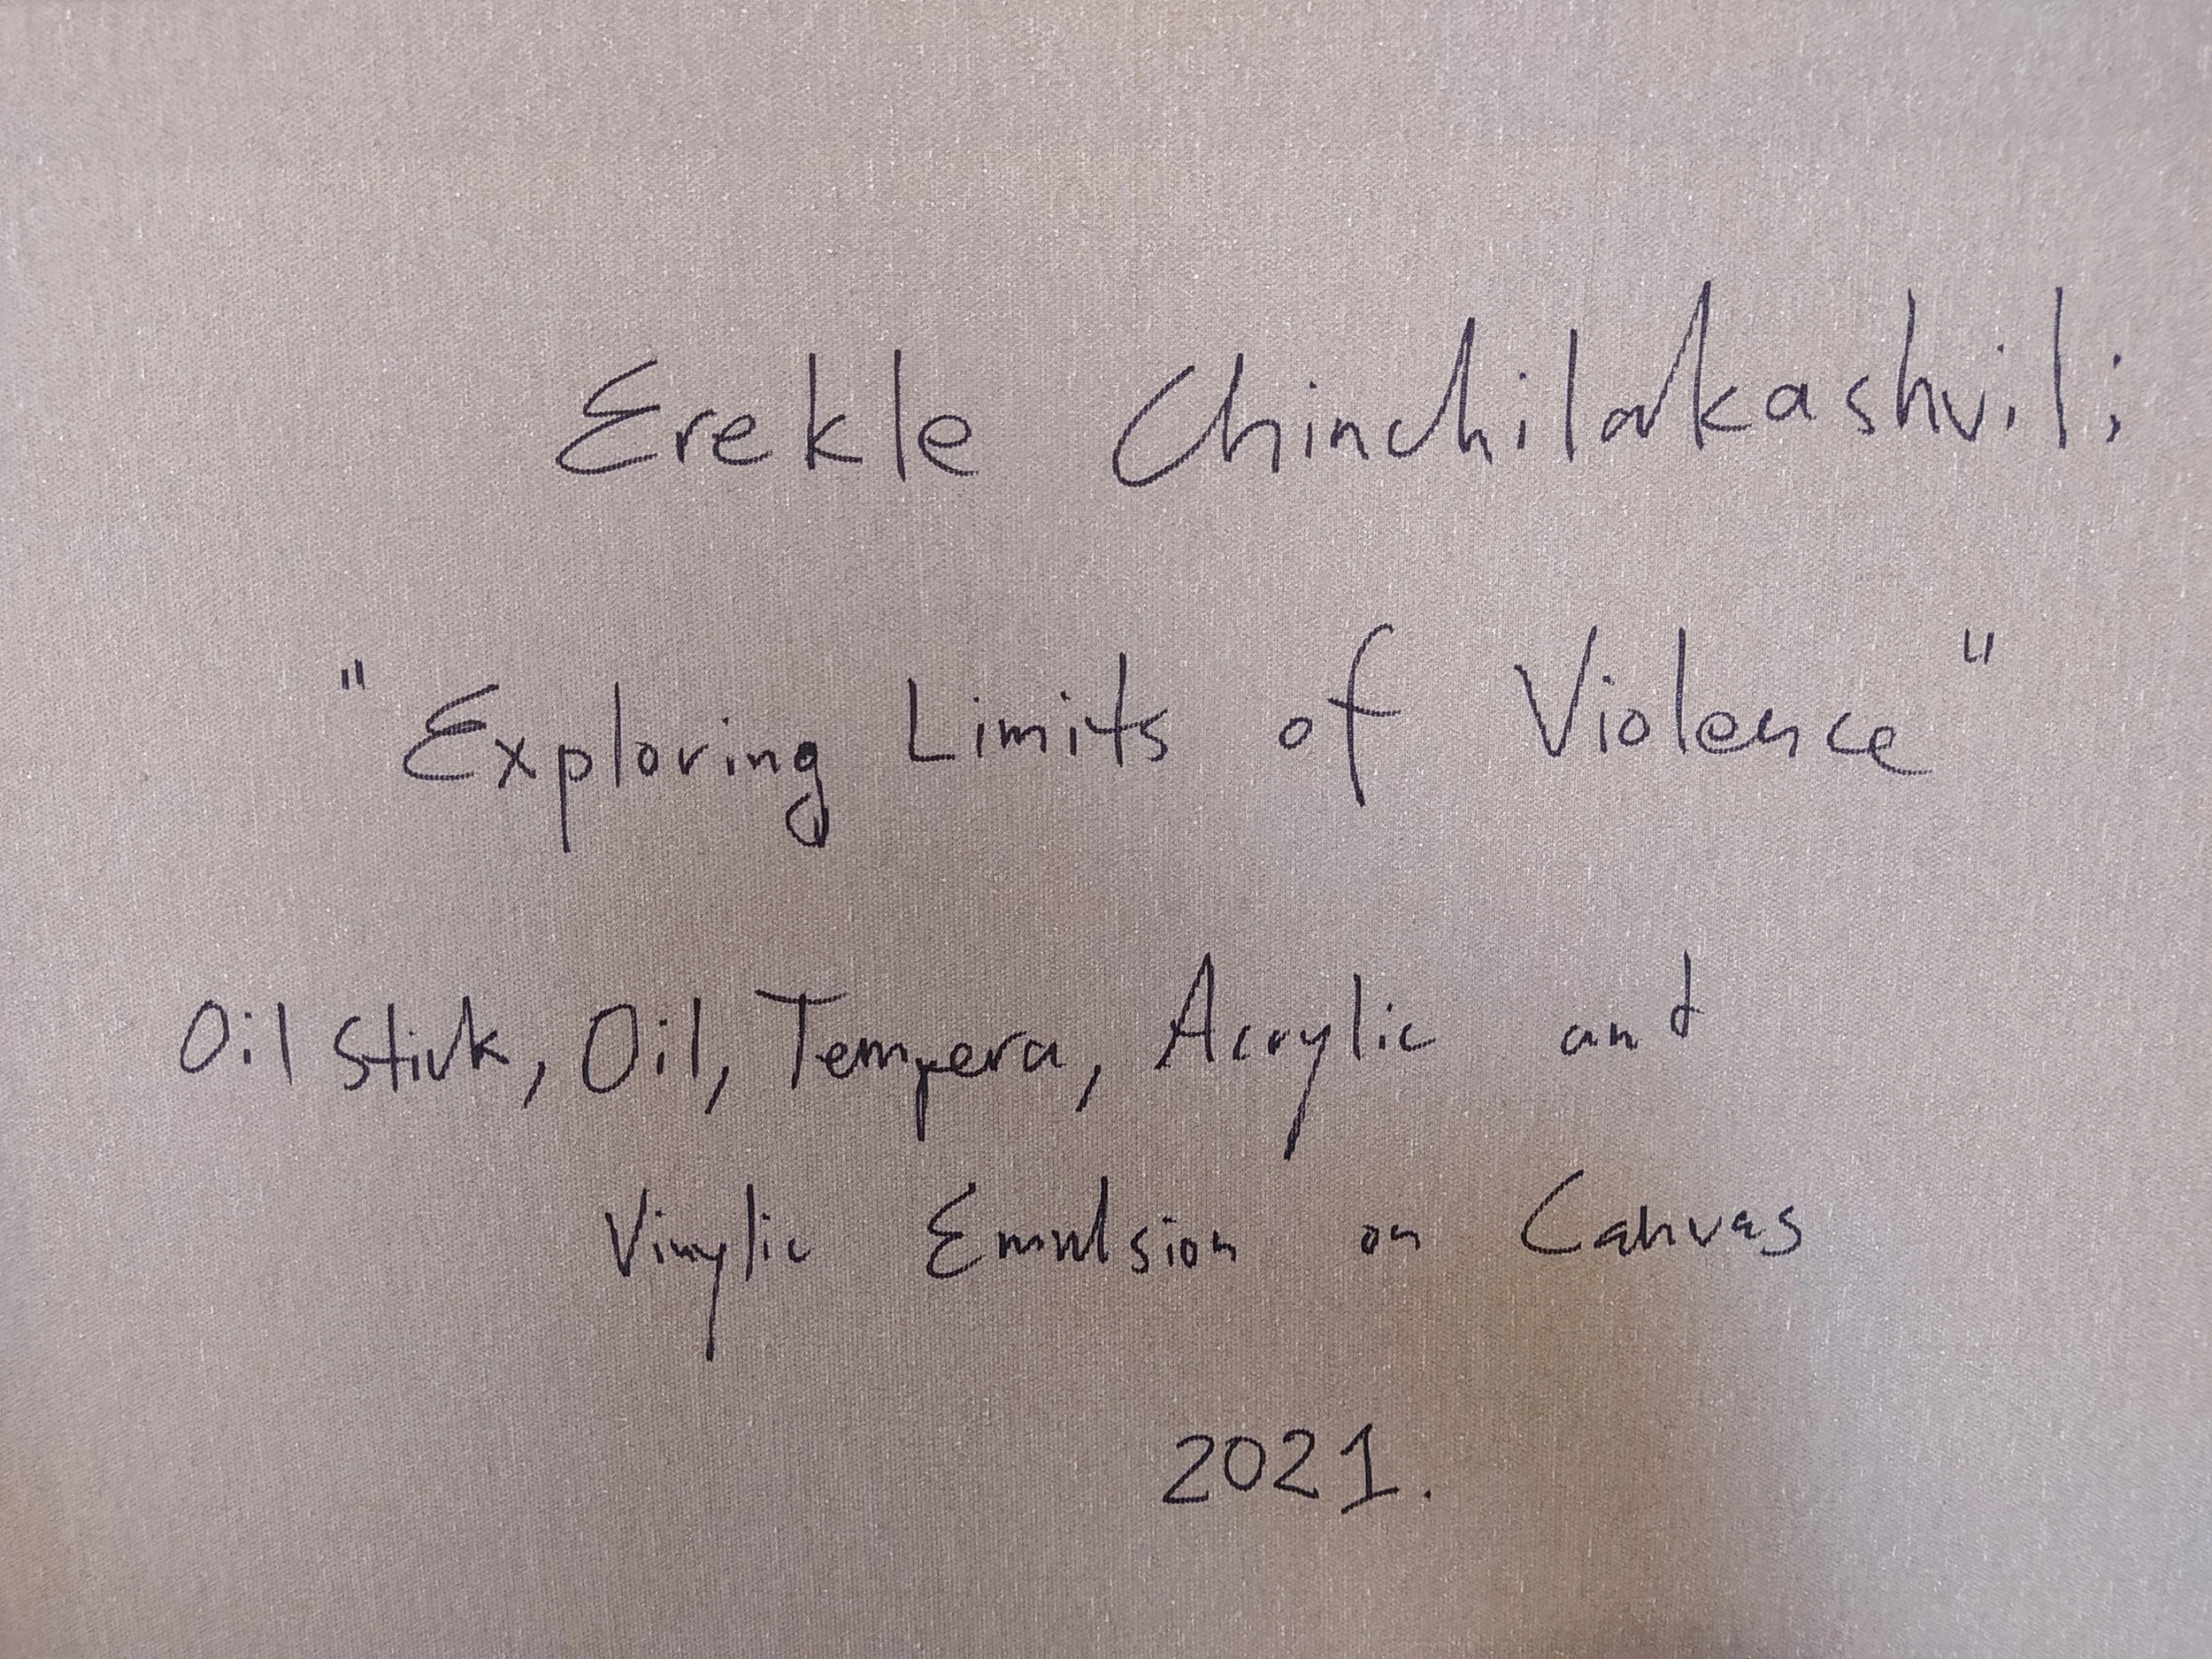 Erekle Chinchilakashvili
"Exploring Limits of Violence"
Oil Stick, Oil, Tempera, Acrylic and
Vinylic Emulsion on Canvas
2021.